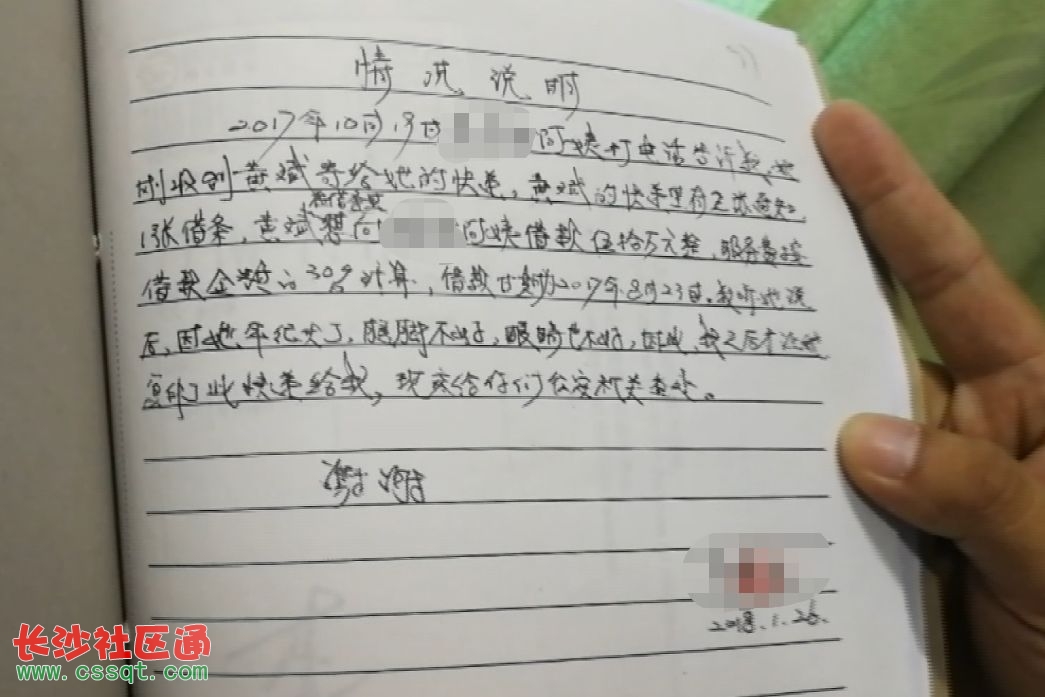 情况说明
2017年10月19日 阿姨打电话告诉我,她
刚收到黄斌寄给她的快递,黄斌的快递里有
1张借条,黄斌想向 阿姨借款伍拾万元整,服务费按
借款金额的30%计算,借款日期为2017年8月23日。我听她说
后,因她年纪大了,腿脚不好,眼睛也不好,因此,我之后才让她
复印了此快递给我,现交给你们公安机关查处。
谢谢
2018.1.26.
长沙社区通
www.cssqt.com